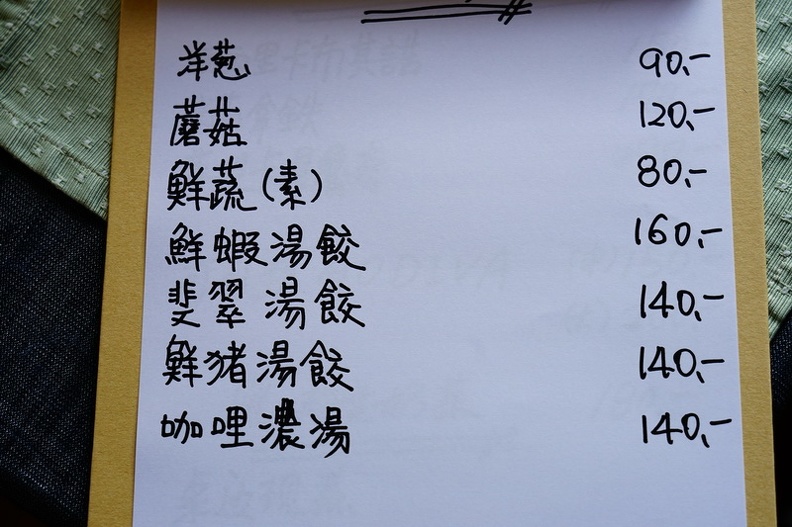 洋葱 90.-
蘑菇 120.-
鮮蔬(素) 80.-
鮮蝦湯餃 160.-
斐翠湯餃 140.-
鮮豬湯餃 140.-
咖哩濃湯 140.-